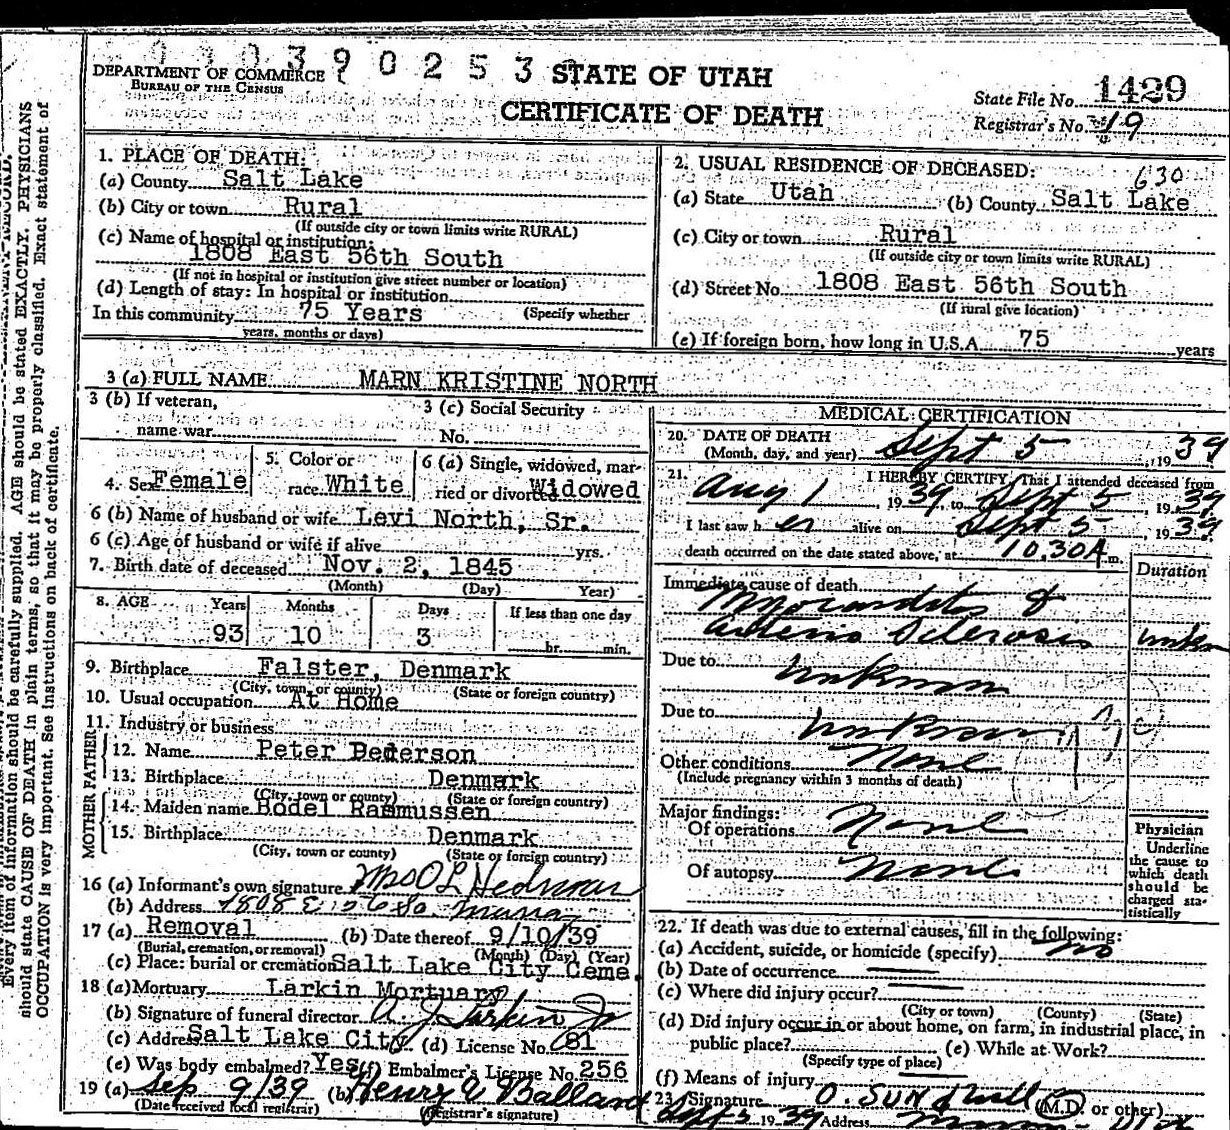 DEPARTMENT OF COMMERCE
BUREAU OF THE CENSUS
STATE OF UTAH
CERTIFICATE OF DEATH
State File No. 1429
Registrar's No. 19
1. PLACE OF DEATH:
(a) County Salt Lake
(b) City or town Rural
(If outside city or town limits write RURAL)
(c) Name of hospital or institution:
1808 East 56th South
(If not in hospital or institution give street number or location)
(d) Length of stay: In hospital or institution
In this community 75 Years (Specify whether
years, months or days)
2. USUAL RESIDENCE OF DECEASED:
630
(a) State Utah (b) County Salt Lake
(c) City or town Rural
(If outside city or town limits write RURAL)
(d) Street No. 1808 East 56th South
(If rural give location)
(e) If foreign born, how long in U.S.A. 75 years
3 (a) FULL NAME MARN KRISTINE NORTH
3 (b) If veteran,
name war
3 (c) Social Security
No.
4. Sex Female
5. Color or
race White
6 (a) Single, widowed, mar-
ried or divorced Widowed
6 (b) Name of husband or wife Levi North, Sr.
6 (c) Age of husband or wife if alive yrs.
7. Birth date of deceased Nov. 2, 1845
(Month) (Day) Year)
8. AGE Years Months Days If less than one day
93 10 3 hr. min.
9. Birthplace Falster, Denmark
(City, town, or county) (State or foreign country)
10. Usual occupation At Home
11. Industry or business
FATHER
12. Name Peter Pederson
13. Birthplace Denmark
(City, town or county) (State or foreign country)
MOTHER
14. Maiden name Bodel Rasmussen
15. Birthplace Denmark
(City, town or county) (State or foreign country)
16 (a) Informant's own signature Mrs O L
(b) Address 1808 E 56 So.
17 (a) Removal (b) Date thereof 9/10/39
(Burial, cremation, or removal) (Month) (Day) (Year)
(c) Place: burial or cremation Salt Lake City Ceme.
18 (a) Mortuary Larkin Mortuary
(b) Signature of funeral director A. J. Larkin Jr
(c) Address Salt Lake City (d) License No. 81
(e) Was body embalmed? Yes (f) Embalmer's License No. 256
19 (a) Sep 9/39 (b) Henry Ballard
(Date received local registrar) (Registrar's signature)
MEDICAL CERTIFICATION
20. DATE OF DEATH
(Month, day, and year) Sept 5, 1939
21. I HEREBY CERTIFY, That I attended deceased from
Aug 1, 1939, to Sept 5, 1939
I last saw her alive on Sept 5, 1939
death occurred on the date stated above, at 10.30 A m.
Duration
Immediate cause of death
Myocarditis &
Arterio Sclerosis
Due to Unknown
Due to Unknown
Other conditions None
(Include pregnancy within 3 months of death)
Major findings:
Of operations None
Of autopsy None
Physician
Underline
the cause to
which death
should be
charged sta-
tistically
22. If death was due to external causes, fill in the following:
(a) Accident, suicide, or homicide (specify) no
(b) Date of occurrence
(c) Where did injury occur?
(City or town) (County) (State)
(d) Did injury occur in or about home, on farm, in industrial place, in
public place? (e) While at Work?
(Specify type of place)
(f) Means of injury
23. Signature O. (M.D. or other)
1939 Address
Every item of information should be carefully supplied. AGE should be stated EXACTLY. PHYSICIANS
should state CAUSE OF DEATH in plain terms, so that it may be properly classified. Exact statement of
OCCUPATION is very important. See instructions on back of certificate.